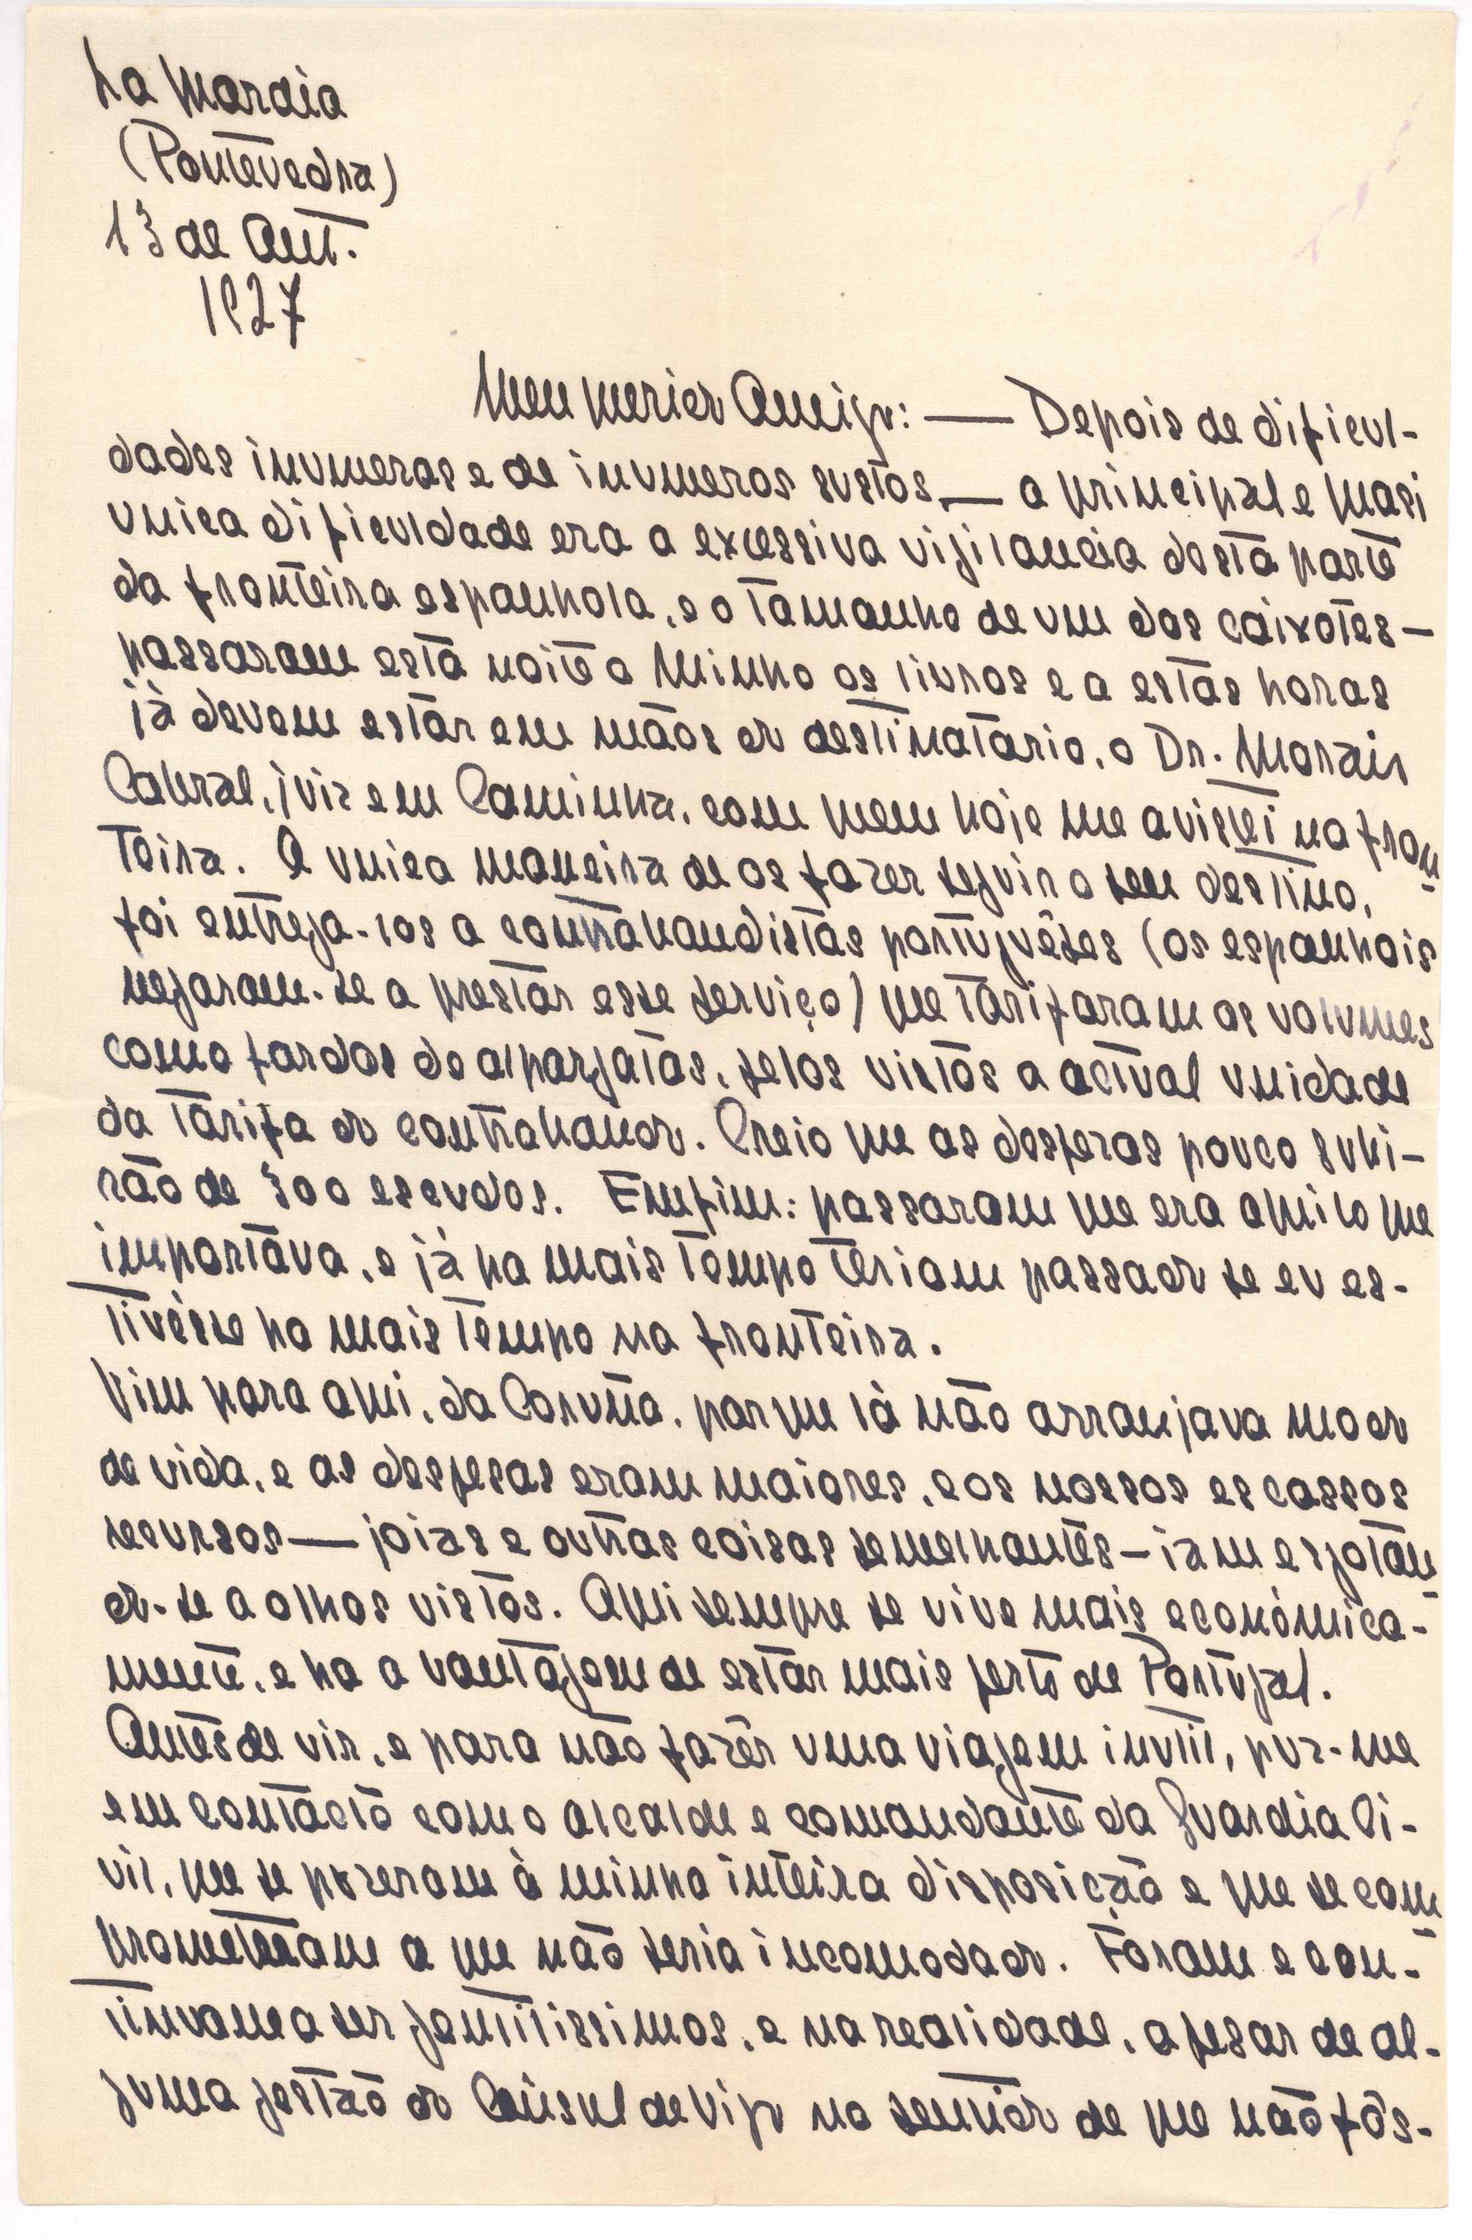 La Guardia
(Pontevedra)
13 de Out.
1927
Meu querido Amigo: — Depois de dificul-
dades inumeras e de inumeros sustos, — a principal e quasi
unica dificuldade era a excessiva vigilancia desta parte
da fronteira espanhola, e o tamanho de um dos caixotes —
passaram esta noite o Minho os livros e a estas horas
já devem estar em mãos do destinatario, o Dr. Morais
Cabral, juiz em Caminha, com quem hoje me avistei na fron
teira. A unica maneira de os fazer seguir o seu destino,
foi entrega-los a contrabandistas portuguêses (os espanhois
negaram-se a prestar esse serviço) que tarifaram os volumes
como fardos de alpargatas, pelos vistos a actual unidade
da tarifa do contrabando. Creio que as despezas pouco subi-
rão de 300 escudos. Emfim: passaram que era aquilo que
importava, e já ha mais tempo teriam passado se eu es-
tivésse ha mais tempo na fronteira.
Vim para aqui, da Coruña, porque lá não arranjava modo
de vida, e as despesas eram maiores, e os nossos escassos
recursos — joias e outras coisas semelhantes — iam esgotan
do-se a olhos vistos. Aqui sempre se vive mais económica-
mente, e ha a vantagem de estar mais perto de Portugal.
Antes de vir, e para não fazêr uma viagem inutil, puz-me
em contacto com o alcalde e comandante da Guardia Ci-
vil, que se pozeram à minha inteira disposição e que se com
prometeram a que não seria incomodado. Foram e con-
tinuam a ser gentilissimos, e na realidade, apesar de al-
guma gestão do Cônsul de Vigo no sentido de que não fôs-